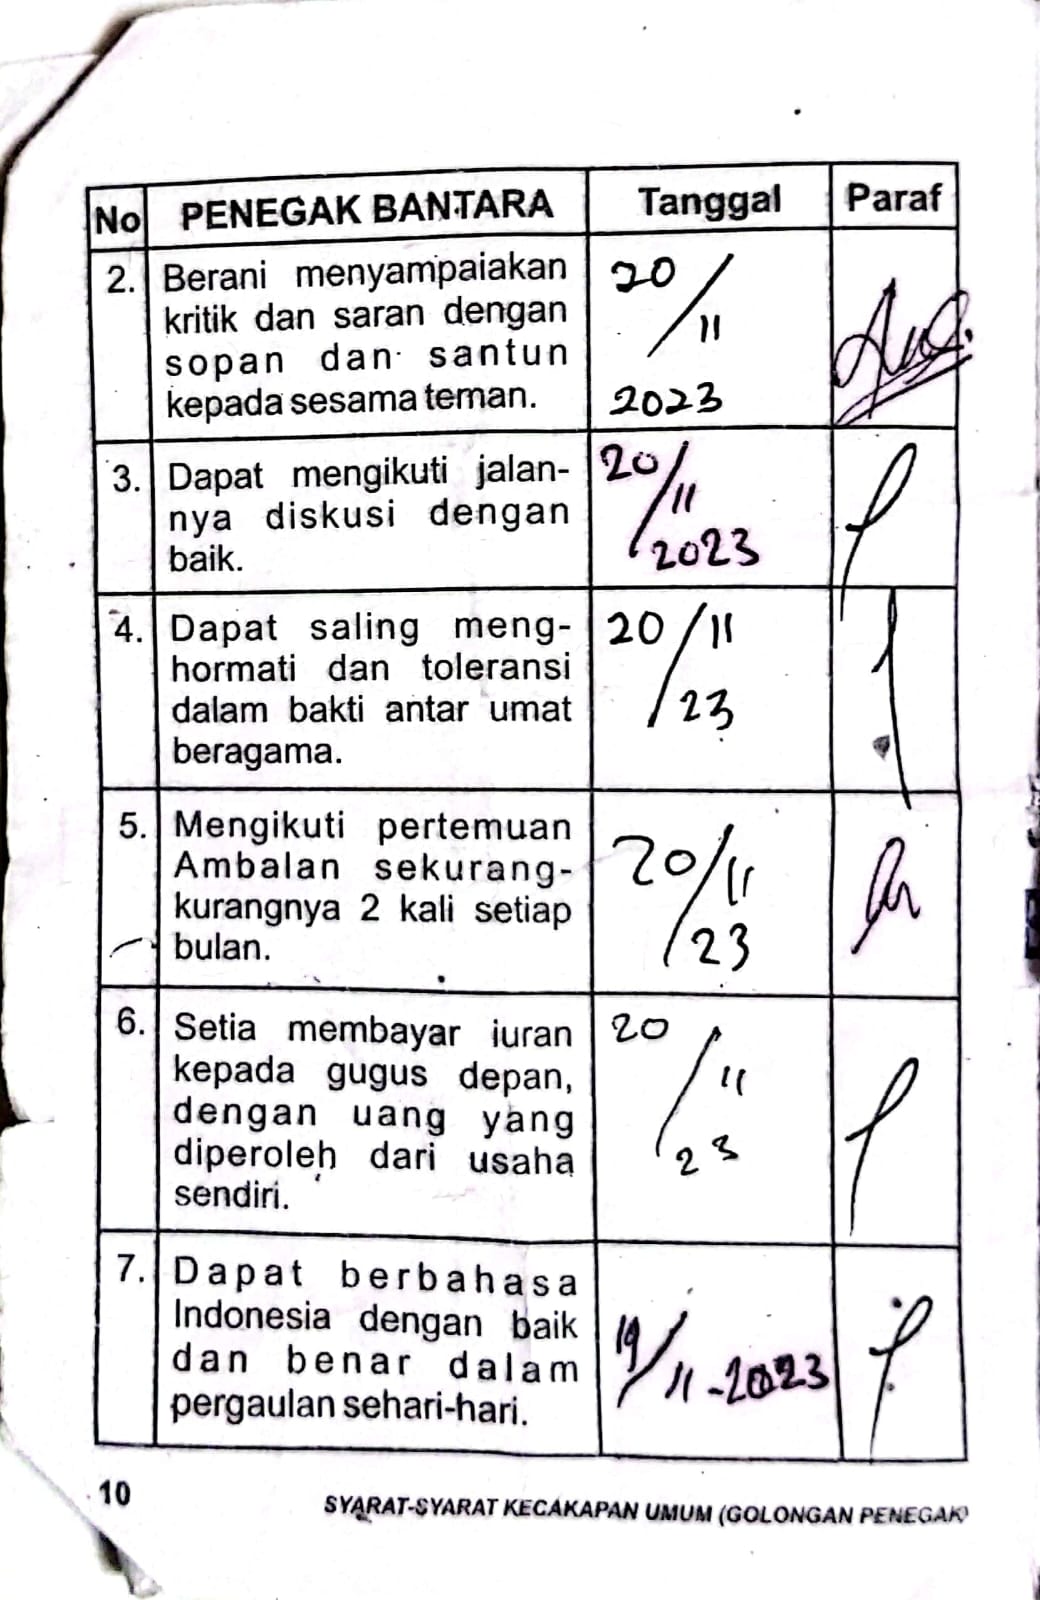 No PENEGAK BANTARA Tanggal Paraf
2. Berani menyampaiakan
kritik dan saran dengan
sopan dan santun
kepada sesama teman.
20 / 11
2023
3. Dapat mengikuti jalan-
nya diskusi dengan
baik.
20 / 11
2023
4. Dapat saling meng-
hormati dan toleransi
dalam bakti antar umat
beragama.
20 / 11
/ 23
5. Mengikuti pertemuan
Ambalan sekurang-
kurangnya 2 kali setiap
bulan.
20 / 11
/ 23
6. Setia membayar iuran
kepada gugus depan,
dengan uang yang
diperoleh dari usaha
sendiri.
20 / 11
23
7. Dapat berbahasa
Indonesia dengan baik
dan benar dalam
pergaulan sehari-hari.
19 / 11 - 2023
10
SYARAT-SYARAT KECAKAPAN UMUM (GOLONGAN PENEGAK)